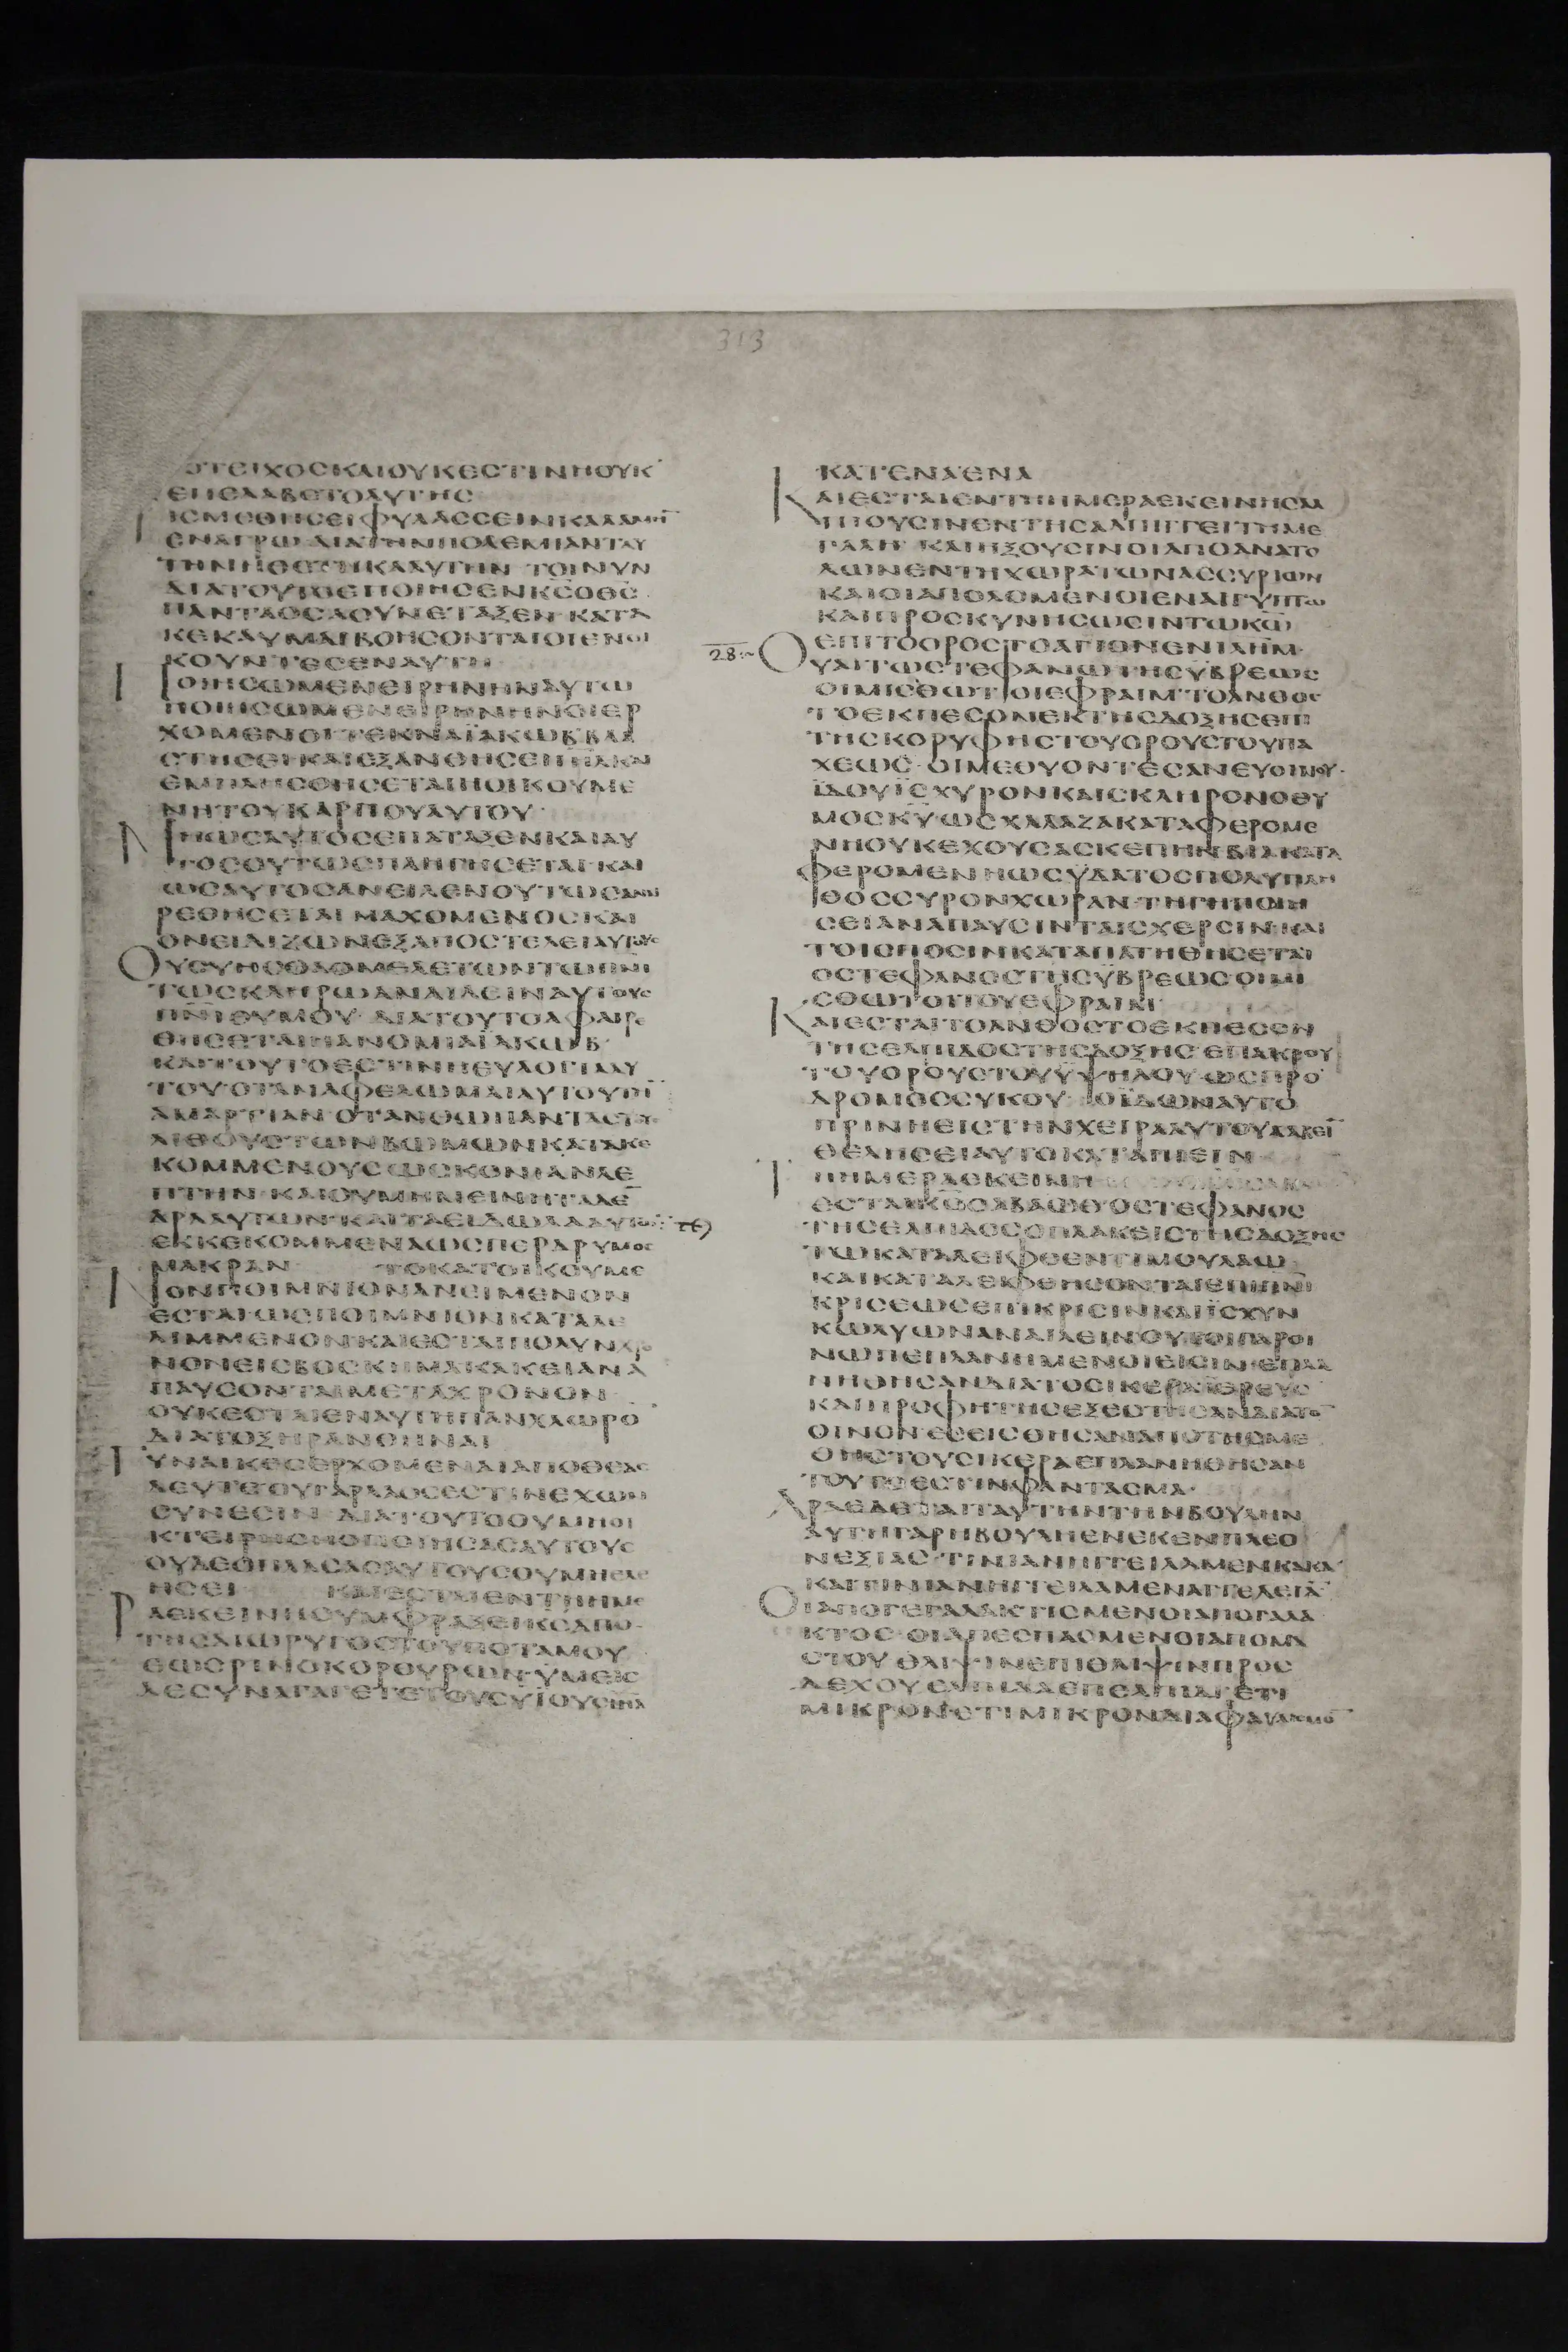 ΟΤΕΙΧΟϹΚΑΙΟΥΚΕϹΤΙΝΗΟΥΚ
ΕΠΕΛΑΒΕΤΟΑΥΤΗϹ
ΤΙϹΜΕΘΗϹΕΙΦΥΛΑϹϹΕΙΝΚΑΛΑΜΗ̅
ΕΝΑΓΡΩ ΔΙΑΤΗΝΠΟΛΕΜΙΑΝΤΑΥ
ΤΗΝΗΘΕΤΗΚΑΑΥΤΗΝ ΤΟΙΝΥΝ
ΔΙΑΤΟΥΤΟΕΠΟΙΗϹΕΝΚ̅Ϲ̅ΟΘ̅Ϲ̅
ΠΑΝΤΑΟϹΑϹΥΝΕΤΑΞΕΝ ΚΑΤΑ
ΚΕΚΑΥΜΑΙΒΟΗϹΟΝΤΑΙΟΙΕΝΟΙ
ΚΟΥΝΤΕϹΕΝΑΥΤΗ
ΠΟΙΗϹΩΜΕΝΕΙΡΗΝΗΝΑΥΤΩ
ΠΟΙΗϹΩΜΕΝΕΙΡΗΝΗΝΟΙΕΡ
ΧΟΜΕΝΟΙΤΕΚΝΑΪΑΚΩΒΒΛΑ
ϹΤΗϹΕΙΚΑΙΕΞΑΝΘΗϹΕΙΙΗ̅Λ̅ΚΑΙ
ΕΜΠΛΗϹΘΗϹΕΤΑΙΗΟΙΚΟΥΜΕ
ΝΗΤΟΥΚΑΡΠΟΥΑΥΤΟΥ·
ΜΗΩϹΑΥΤΟϹΕΠΑΤΑΞΕΝΚΑΙΑΥ
ΤΟϹΟΥΤΩϹΠΛΗΓΗϹΕΤΑΙ·ΚΑΙ
ΩϹΑΥΤΟϹΑΝΕΙΛΕΝΟΥΤΩϹΑΝΑΙ
ΡΕΘΗϹΕΤΑΙ ΜΑΧΟΜΕΝΟϹΚΑΙ
ΟΝΕΙΔΙΖΩΝΕΞΑΠΟϹΤΕΛΕΙΑΥΤΟΥϹ
ΟΥϹΥΗϹΘΑΟΜΕΛΕΤΩΝΤΩΠ̅Ν̅Ι̅
ΤΩϹΚΛΗΡΩΑΝΑΙΛΕΙΝΑΥΤΟΥϹ
Π̅Ν̅Ι̅ΘΥΜΟΥ· ΔΙΑΤΟΥΤΟΑΦΑΙΡΕ
ΘΗϹΕΤΑΙΗΑΝΟΜΙΑΪΑΚΩΒ·
ΚΑΙΤΟΥΤΟΕϹΤΙΝΗΕΥΛΟΓΙΑΑΥ
ΤΟΥ·ΟΤΑΝΑΦΕΛΩΜΑΙΑΥΤΟΥΤΗ̅
ΑΜΑΡΤΙΑΝ·ΟΤΑΝΘΩΠΑΝΤΑϹΤΟΥϹ
ΛΙΘΟΥϹΤΩΝΒΩΜΩΝΚΑΤΑΚΕ
ΚΟΜΜΕΝΟΥϹΩϹΚΟΝΙΑΝΛΕ
ΠΤΗΝ·ΚΑΙΟΥΜΗΜΕΙΝΗΤΑΔΕ̅
ΔΡΑΑΥΤΩΝ·ΚΑΙΤΑΕΙΔΩΛΑΑΥΤΩΝ
ΕΚΚΕΚΟΜΜΕΝΑΩϹΠΕΡΔΡΥΜΟϹ
ΜΑΚΡΑΝ ΤΟΚΑΤΟΙΚΟΥΜΕ
ΝΟΝΠΟΙΜΝΙΟΝΑΝΕΙΜΕΝΟΝ
ΕϹΤΑΙ·ΩϹΠΟΙΜΝΙΟΝΚΑΤΑΛΕ
ΛΙΜΜΕΝΟΝ·ΚΑΙΕϹΤΑΙΠΟΛΥΝΧΡΟ
ΝΟΝΕΙϹΒΟϹΚΗΜΑΚΑΚΕΙΑΝΑ
ΠΑΥϹΟΝΤΑΙΜΕΤΑΧΡΟΝΟΝ·
ΟΥΚΕϹΤΑΙΕΝΑΥΤΗΠΑΝΧΛΩΡΟ̅
ΔΙΑΤΟΞΗΡΑΝΘΗΝΑΙ
ΓΥΝΑΙΚΕϹΕΡΧΟΜΕΝΑΙΑΠΟΘΕΑϹ
ΔΕΥΤΕΟΥΓΑΡΛΑΟϹΕϹΤΙΝΕΧΩΝ
ϹΥΝΕϹΙΝ ΔΙΑΤΟΥΤΟΟΥΜΗΟΙ
ΚΤΕΙΡΗϹΗΟΠΟΙΗϹΑϹΑΥΤΟΥϹ
ΟΥΔΕΟΠΛΑϹΑϹΑΥΤΟΥϹΟΥΜΗΕΛΕ
ΗϹΕΙ ΚΑΙΕϹΤΑΙΕΝΤΗΗΜΕ
ΡΑΕΚΕΙΝΗϹΥΜΦΡΑΞΕΙΚ̅Ϲ̅ΑΠΟ
ΤΗϹΔΙΩΡΥΓΟϹΤΟΥΠΟΤΑΜΟΥ
ΕΩϹΡΙΝΟΚΟΡΟΥΡΩΝ·ΥΜΕΙϹ
ΔΕϹΥΝΑΓΑΓΕΤΕΤΟΥϹΥΪΟΥϹΙΗ̅Λ̅
ΚΑΤΕΝΑΕΝΑ
ΚΑΙΕϹΤΑΙΕΝΤΗΗΜΕΡΑΕΚΕΙΝΗϹΑΛ
ΠΙΟΥϹΙΝΕΝΤΗϹΑΛΠΙΓΓΕΙΤΗΜΕ
ΓΑΛΗ ΚΑΙΗΞΟΥϹΙΝΟΙΑΠΟΛΛΥΜΕ
ΚΑΙΟΙΑΠΟΛΟΜΕΝΟΙΕΝΑΙΓΥΠΤΩ
ΚΑΙΠΡΟϹΚΥΝΗϹΩϹΙΝΤΩΚ̅Ω̅
28:~
ΕΠΙΤΟΟΡΟϹΤΟΑΓΙΟΝΕΝΙΛΗ̅Μ̅·
ΟΥΑΙΤΩϹΤΕΦΑΝΩΤΗϹΫΒΡΕΩϹ
ΟΙΜΙϹΘΩΤΟΙΕΦΡΑΙΜ·ΤΟΑΝΘΟϹ
ΤΟΕΚΠΕϹΟΝΕΚΤΗϹΔΟΞΗϹΕΠΙ
ΤΗϹΚΟΡΥΦΗϹΤΟΥΟΡΟΥϹΤΟΥΠΑ
ΧΕΩϹ·ΟΙΜΕΘΥΟΝΤΕϹΑΝΕΥΟΙΝΟΥ·
ΪΔΟΥΪϹΧΥΡΟΝΚΑΙϹΚΛΗΡΟΝΟΘΥ
ΜΟϹΚ̅Υ̅ΩϹΧΑΛΑΖΑΚΑΤΑΦΕΡΟΜΕ
ΝΗΟΥΚΕΧΟΥϹΑϹΚΕΠΗΝΒΙΑΚΑΤΑ
ΦΕΡΟΜΕΝΗΩϹΥΔΑΤΟϹΠΟΛΥΠΛΗ
ΘΟϹϹΥΡΟΝΧΩΡΑΝ·ΤΗΓΗΠΟΙΗ
ϹΕΙΑΝΑΠΑΥϹΙΝΤΑΙϹΧΕΡϹΙΝ·ΚΑΙ
ΤΟΙϹΠΟϹΙΝΚΑΤΑΠΑΤΗΘΗϹΕΤΑΙ
ΟϹΤΕΦΑΝΟϹΤΗϹΫΒΡΕΩϹΟΙΜΙ
ϹΘΩΤΟΙΤΟΥΕΦΡΑΙΜ·
ΚΑΙΕϹΤΑΙΤΟΑΝΘΟϹΤΟΕΚΠΕϹΟΝ
ΤΗϹΕΛΠΙΔΟϹΤΗϹΔΟΞΗϹ·ΕΠΑΚΡΟΥ
ΤΟΥΟΡΟΥϹΤΟΥΫΨΗΛΟΥ·ΩϹΠΡΟ
ΔΡΟΜΟϹϹΥΚΟΥ·ΟΪΔΩΝΑΥΤΟ
ΠΡΙΝΗΕΙϹΤΗΝΧΕΙΡΑΑΥΤΟΥΛΑΒΕΙ̅
ΘΕΛΗϹΕΙΑΥΤΟΚΑΤΑΠΙΕΙΝ
ΤΗΗΜΕΡΑΕΚΕΙΝΗ
ΕϹΤΑΙΚ̅Ϲ̅ϹΑΒΑΩΘ·ΟϹΤΕΦΑΝΟϹ
ΤΗϹΕΛΠΙΔΟϹΟΠΛΑΚΕΙϹΤΗϹΔΟΞΗϹ
ΤΩΚΑΤΑΛΕΙΦΘΕΝΤΙΜΟΥΛΑΩ
ΚΑΙΚΑΤΑΛΕΙΦΘΗϹΟΝΤΑΙΕΠΙΠ̅Ν̅Ι̅
ΚΡΙϹΕΩϹΕΠΙΚΡΙϹΙΝΚΑΙΪϹΧΥΝ
ΚΩΛΥΩΝΑΝΑΙΛΕΙΝ·ΟΥΤΟΙΓΑΡΟΙ
ΝΩΠΕΠΛΑΝΗΜΕΝΟΙΕΙϹΙΝ·ΕΠΛΑ
ΝΗΘΗϹΑΝΔΙΑΤΟϹΙΚΕΡΑΪΕΡΕΥϹ
ΚΑΙΠΡΟΦΗΤΗϹΕΞΕϹΤΗϹΑΝΔΙΑΤΟ̅
ΟΙΝΟΝ·ΕϹΕΙϹΘΗϹΑΝΑΠΟΤΗϹΜΕ
ΘΗϹΤΟΥϹΙΚΕΡΑΕΠΛΑΝΗΘΗϹΑΝ
ΤΟΥΤΟΕϹΤΙΝΦΑΝΤΑϹΜΑ·
ΤΑΥΤΗΝΤΗΝΒΟΥΛΗΝ
ΑΥΤΗΓΑΡΗΒΟΥΛΗΕΝΕΚΕΝΠΛΕΟ
ΝΕΞΙΑϹ·ΤΙΝΙΑΝΗΓΓΕΙΛΑΜΕΝΚΑΚΑ·
ΚΑΙΤΙΝΙΑΝΗΓΓΕΙΛΑΜΕΝΑΓΓΕΛΕΙΑ̅
ΟΙΑΠΟΓΕΓΑΛΑΚΤΙϹΜΕΝΟΙΑΠΟΓΑΛΑ
ΚΤΟϹ·ΟΙΑΠΕϹΠΑϹΜΕΝΟΙΑΠΟΜΑ
ϹΤΟΥ ΘΛΙΨΙΝΕΠΙΘΛΙΨΙΝΠΡΟϹ
ΔΕΧΟΥΕΛΠΙΔΑΕΠΕΛΠΙΔΙ·ΕΤΙ
ΜΙΚΡΟΝΕΤΙΜΙΚΡΟΝΔΙΑΦΑΥΛΙϹΜΟ̅